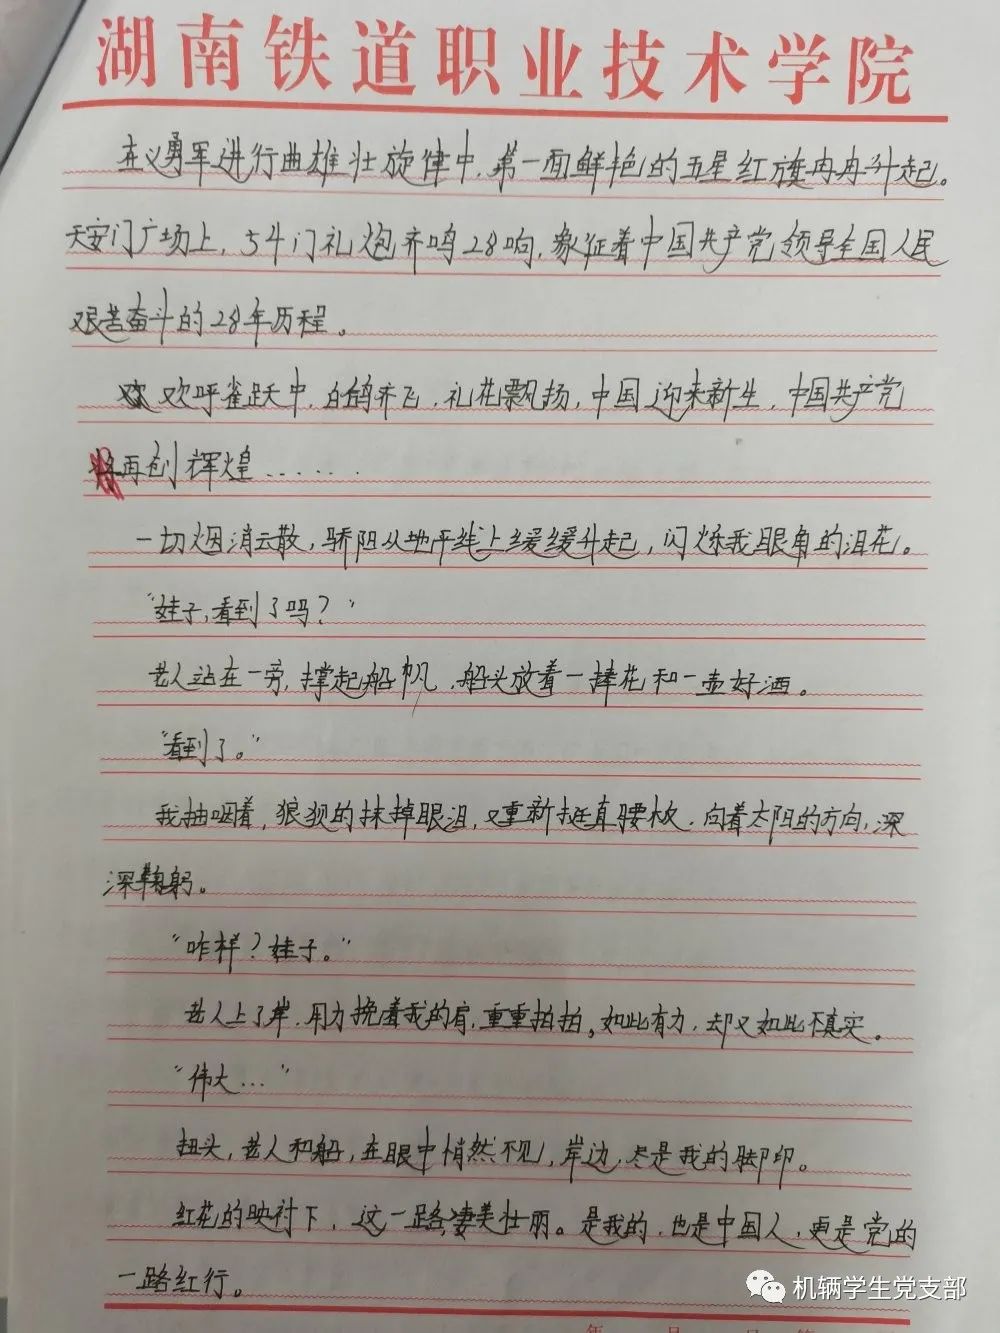 湖南铁道职业技术学院
在义勇军进行曲雄壮旋律中，第一面鲜艳的五星红旗冉冉升起。
天安门广场上，54门礼炮齐鸣28响，象征着中国共产党领导全国人民
艰苦奋斗的28年历程。
欢呼雀跃中，白鸽齐飞，礼花飘扬，中国迎来新生，中国共产党
再创辉煌.......
一切烟消云散，骄阳从地平线上缓缓升起，闪烁我眼角的泪花。
“娃子，看到了吗？”
老人站在一旁，撑起船帆，船头放着一捧花和一壶好酒。
“看到了。”
我抽咽着，狼狈的抹掉眼泪，又重新挺直腰板，向着太阳的方向，深
深鞠躬。
“咋样？娃子。”
老人上了岸，用力挽着我的肩，重重拍拍。如此有力，却又如此不真实。
“伟大...”
扭头，老人和船，在眼中悄然不见，岸边，尽是我的脚印。
红花的映衬下，这一路，凄美壮丽。是我的，也是中国人，更是党的
一路红行。
机辆学生党支部